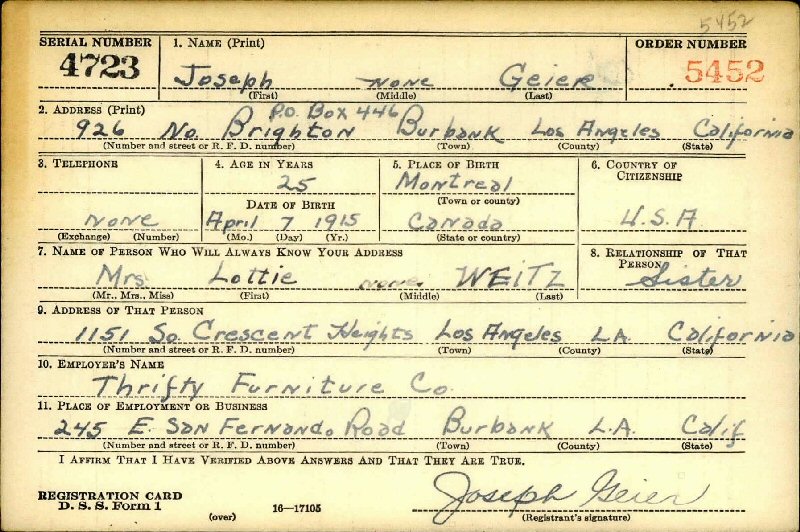 5452
SERIAL NUMBER 1. NAME (Print) ORDER NUMBER
4723 Joseph none Geier 5452
(First) (Middle) (Last)
2. ADDRESS (Print) P.O. Box 446
926 No. Brighton Burbank Los Angeles California
(Number and street or R. F. D. number) (Town) (County) (State)
3. TELEPHONE 4. AGE IN YEARS 5. PLACE OF BIRTH 6. COUNTRY OF CITIZENSHIP
25 Montreal
(Town or county)
DATE OF BIRTH
none April 7 1915 Canada U.S.A
(Exchange) (Number) (Mo.) (Day) (Yr.) (State or country)
7. NAME OF PERSON WHO WILL ALWAYS KNOW YOUR ADDRESS 8. RELATIONSHIP OF THAT PERSON
Mrs Lottie none WEITZ Sister
(Mr., Mrs., Miss) (First) (Middle) (Last)
9. ADDRESS OF THAT PERSON
1151 So. Crescent Heights Los Angeles L.A. California
(Number and street or R. F. D. number) (Town) (County) (State)
10. EMPLOYER'S NAME
Thrifty Furniture Co.
11. PLACE OF EMPLOYMENT OR BUSINESS
245 E. San Fernando Road Burbank L.A. Calif
(Number and street or R. F. D. number) (Town) (County) (State)
I AFFIRM THAT I HAVE VERIFIED ABOVE ANSWERS AND THAT THEY ARE TRUE.
Joseph Geier
REGISTRATION CARD
D. S. S. Form 1
(over) 16—17105 (Registrant's signature)